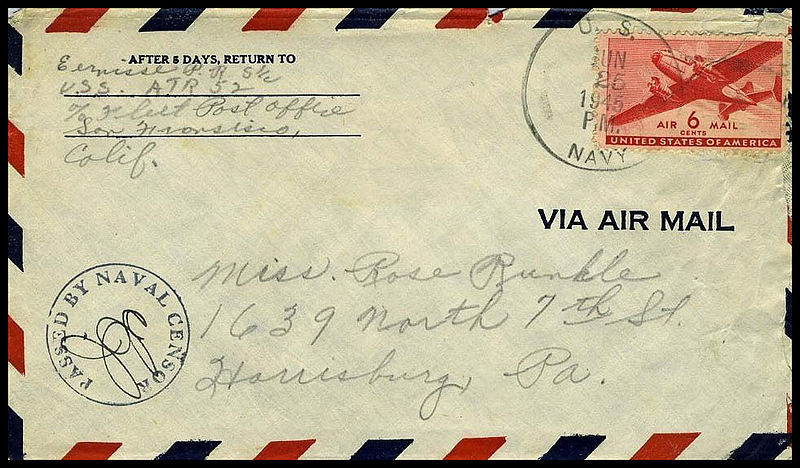 AFTER 5 DAYS, RETURN TO
Eernisse P. R. S 1/c
U.S.S. ATR 52
c/o Fleet Post Office
San Francisco,
Calif.
U. S.
JUN
26
1945
P.M.
NAVY
AIR 6 MAIL
CENTS
UNITED STATES OF AMERICA
VIA AIR MAIL
PASSED BY NAVAL CENSOR
Miss. Rose Runkle
1639 North 7th St.
Harrisburg, Pa.